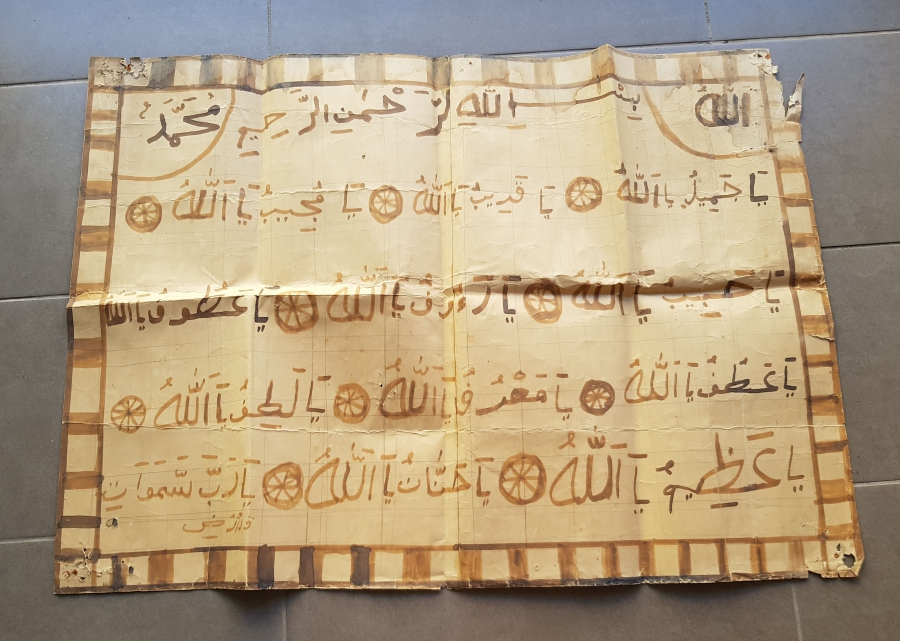 الله بسم الله لرَّحْمٰنِ الرَّحِيمِ مُحَمَّدْ
يَا جَمِيلُ يا اَللّٰهُ يَا قَرِيبُ يَا اَللّٰهُ يَا مُجِيبُ يَا اَللّٰهُ
يَا حَبِيبُ يَا اَللّٰهُ يَا رَءُوفُ يَا اَللّٰهُ يَا عَطُوفُ يَا الله
يَا عَطُفُ يَا اَللّٰهُ يَا مَعْرُفُ يَا اَللّٰهُ يَا لَطِفُ يَا اَللّٰهُ
يا عَظِيمُ يَا اَللّٰهُ يَا حَنَّانُ يَا اَللّٰهُ يَا رَبَّ سَّمَوَاتِ
وَارْضِ